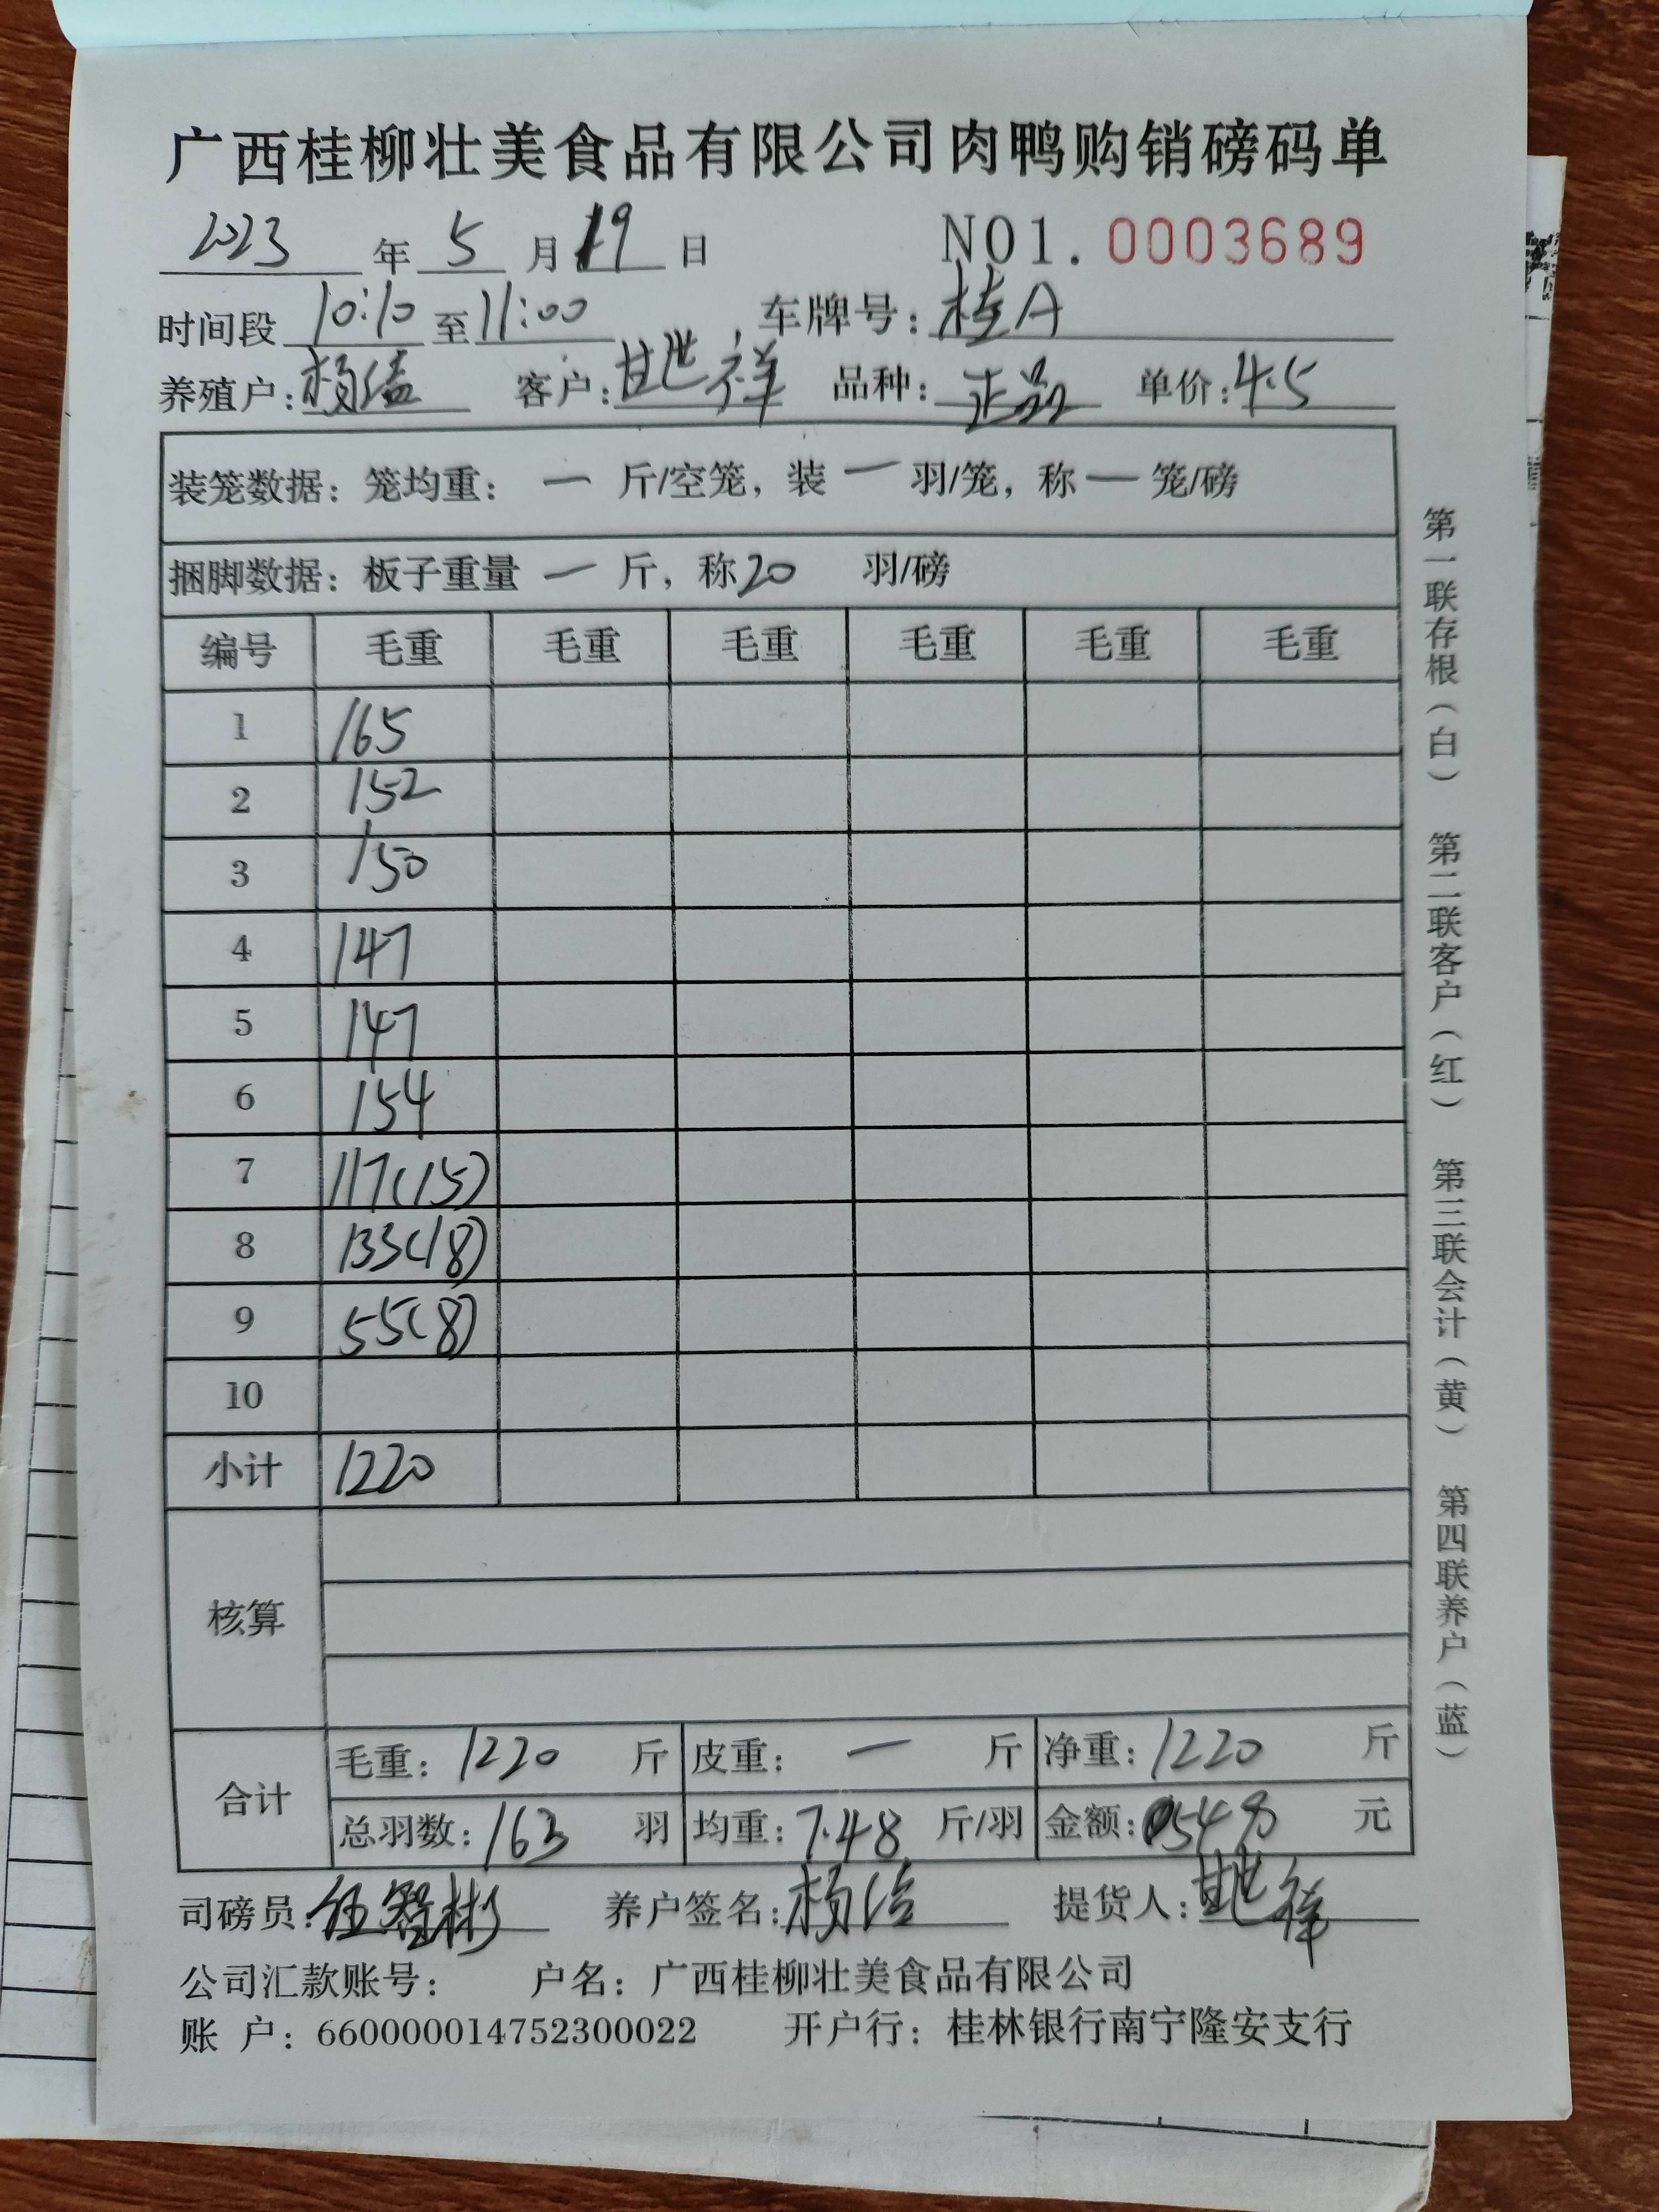 广西桂柳壮美食品有限公司肉鸭购销磅码单
2023 年 5 月 19 日 NO1. 0003689
时间段 10:10 至 11:00 车牌号: 桂A
养殖户: 杨 客户: 甘世祥 品种: 正品 单价: 4.5
装笼数据: 笼均重: — 斤/空笼, 装 — 羽/笼, 称 — 笼/磅
捆脚数据: 板子重量 — 斤, 称 20 羽/磅
编号 毛重 毛重 毛重 毛重 毛重 毛重
1 165
2 152
3 150
4 147
5 147
6 154
7 117(15)
8 133(18)
9 55(8)
10
小计 1220
核算
合计 毛重: 1220 斤 皮重: — 斤 净重: 1220 斤
总羽数: 163 羽 均重: 7.48 斤/羽 金额: 5498 元
司磅员: 伍智彬 养户签名: 杨 提货人: 甘世祥
公司汇款账号: 户名: 广西桂柳壮美食品有限公司
账 户: 660000014752300022 开户行: 桂林银行南宁隆安支行
第一联存根(白) 第二联客户(红) 第三联会计(黄) 第四联养户(蓝)